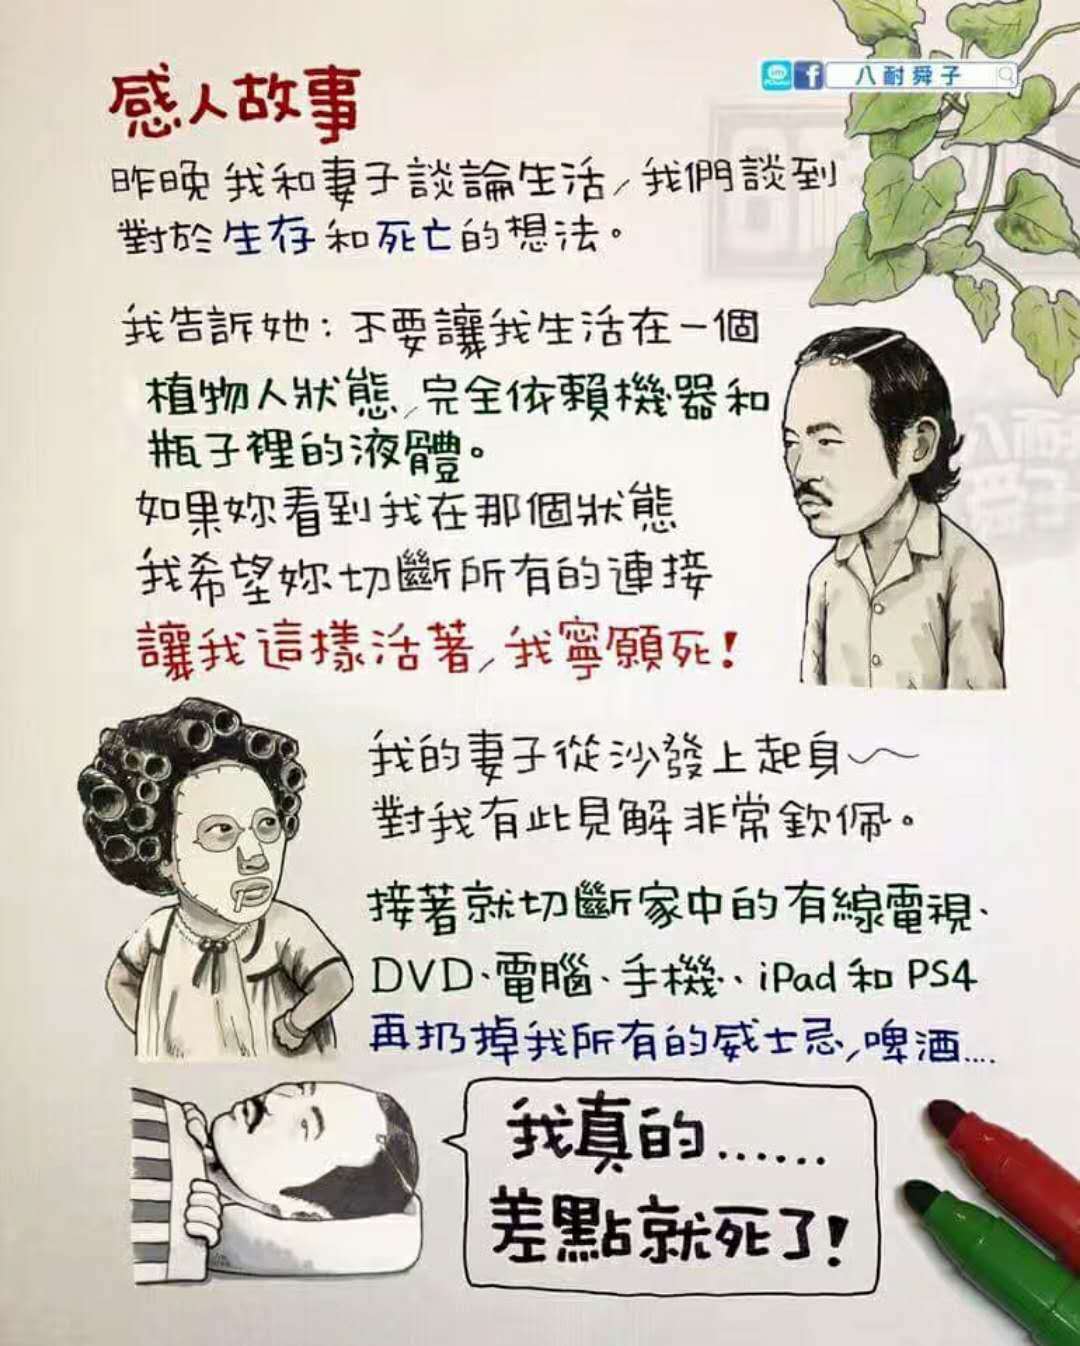 八耐舜子
感人故事
昨晚我和妻子談論生活，我們談到
對於生存和死亡的想法。
我告訴她：不要讓我生活在一個
植物人狀態，完全依賴機器和
瓶子裡的液體。
如果妳看到我在那個狀態
我希望妳切斷所有的連接
讓我這樣活著，我寧願死！
我的妻子從沙發上起身～
對我有此見解非常欽佩。
接著就切斷家中的有線電視、
DVD、電腦、手機、iPad和PS4
再扔掉我所有的威士忌，啤酒....
我真的......
差點就死了！